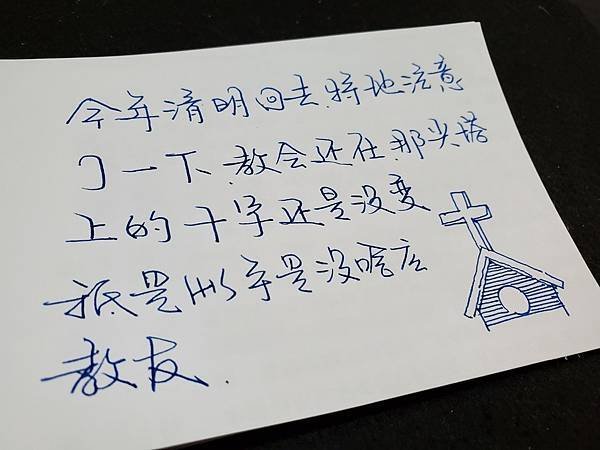 今年清明回去.特地注意
了一下.教会还在.那尖塔
上的十字还是没变
祇是似乎是没啥
教友.